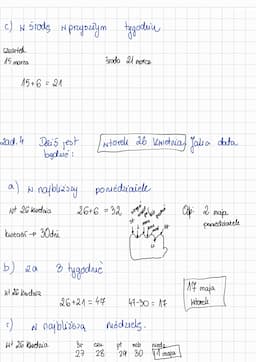 c) w środę w przyszłym tygodniu
czwartek
15 marca środa 21 marca
15+6 = 21
zad. 4 Dziś jest wtorek 26 kwietnia. Jaka data
będzie:
a) w najbliższy poniedziałek
wt 26 kwietnia 26+6 = 32 Odp: 2 maja
poniedziałek
kwiecień → 30 dni
b) za 3 tygodnie
wt 26 kwietnia 26+21 = 47 47-30 = 17 17 maja
wtorek
c) w najbliższą niedzielę.
wt 26 kwietnia śr czw pt sob niedz
27 28 29 30 1 maja